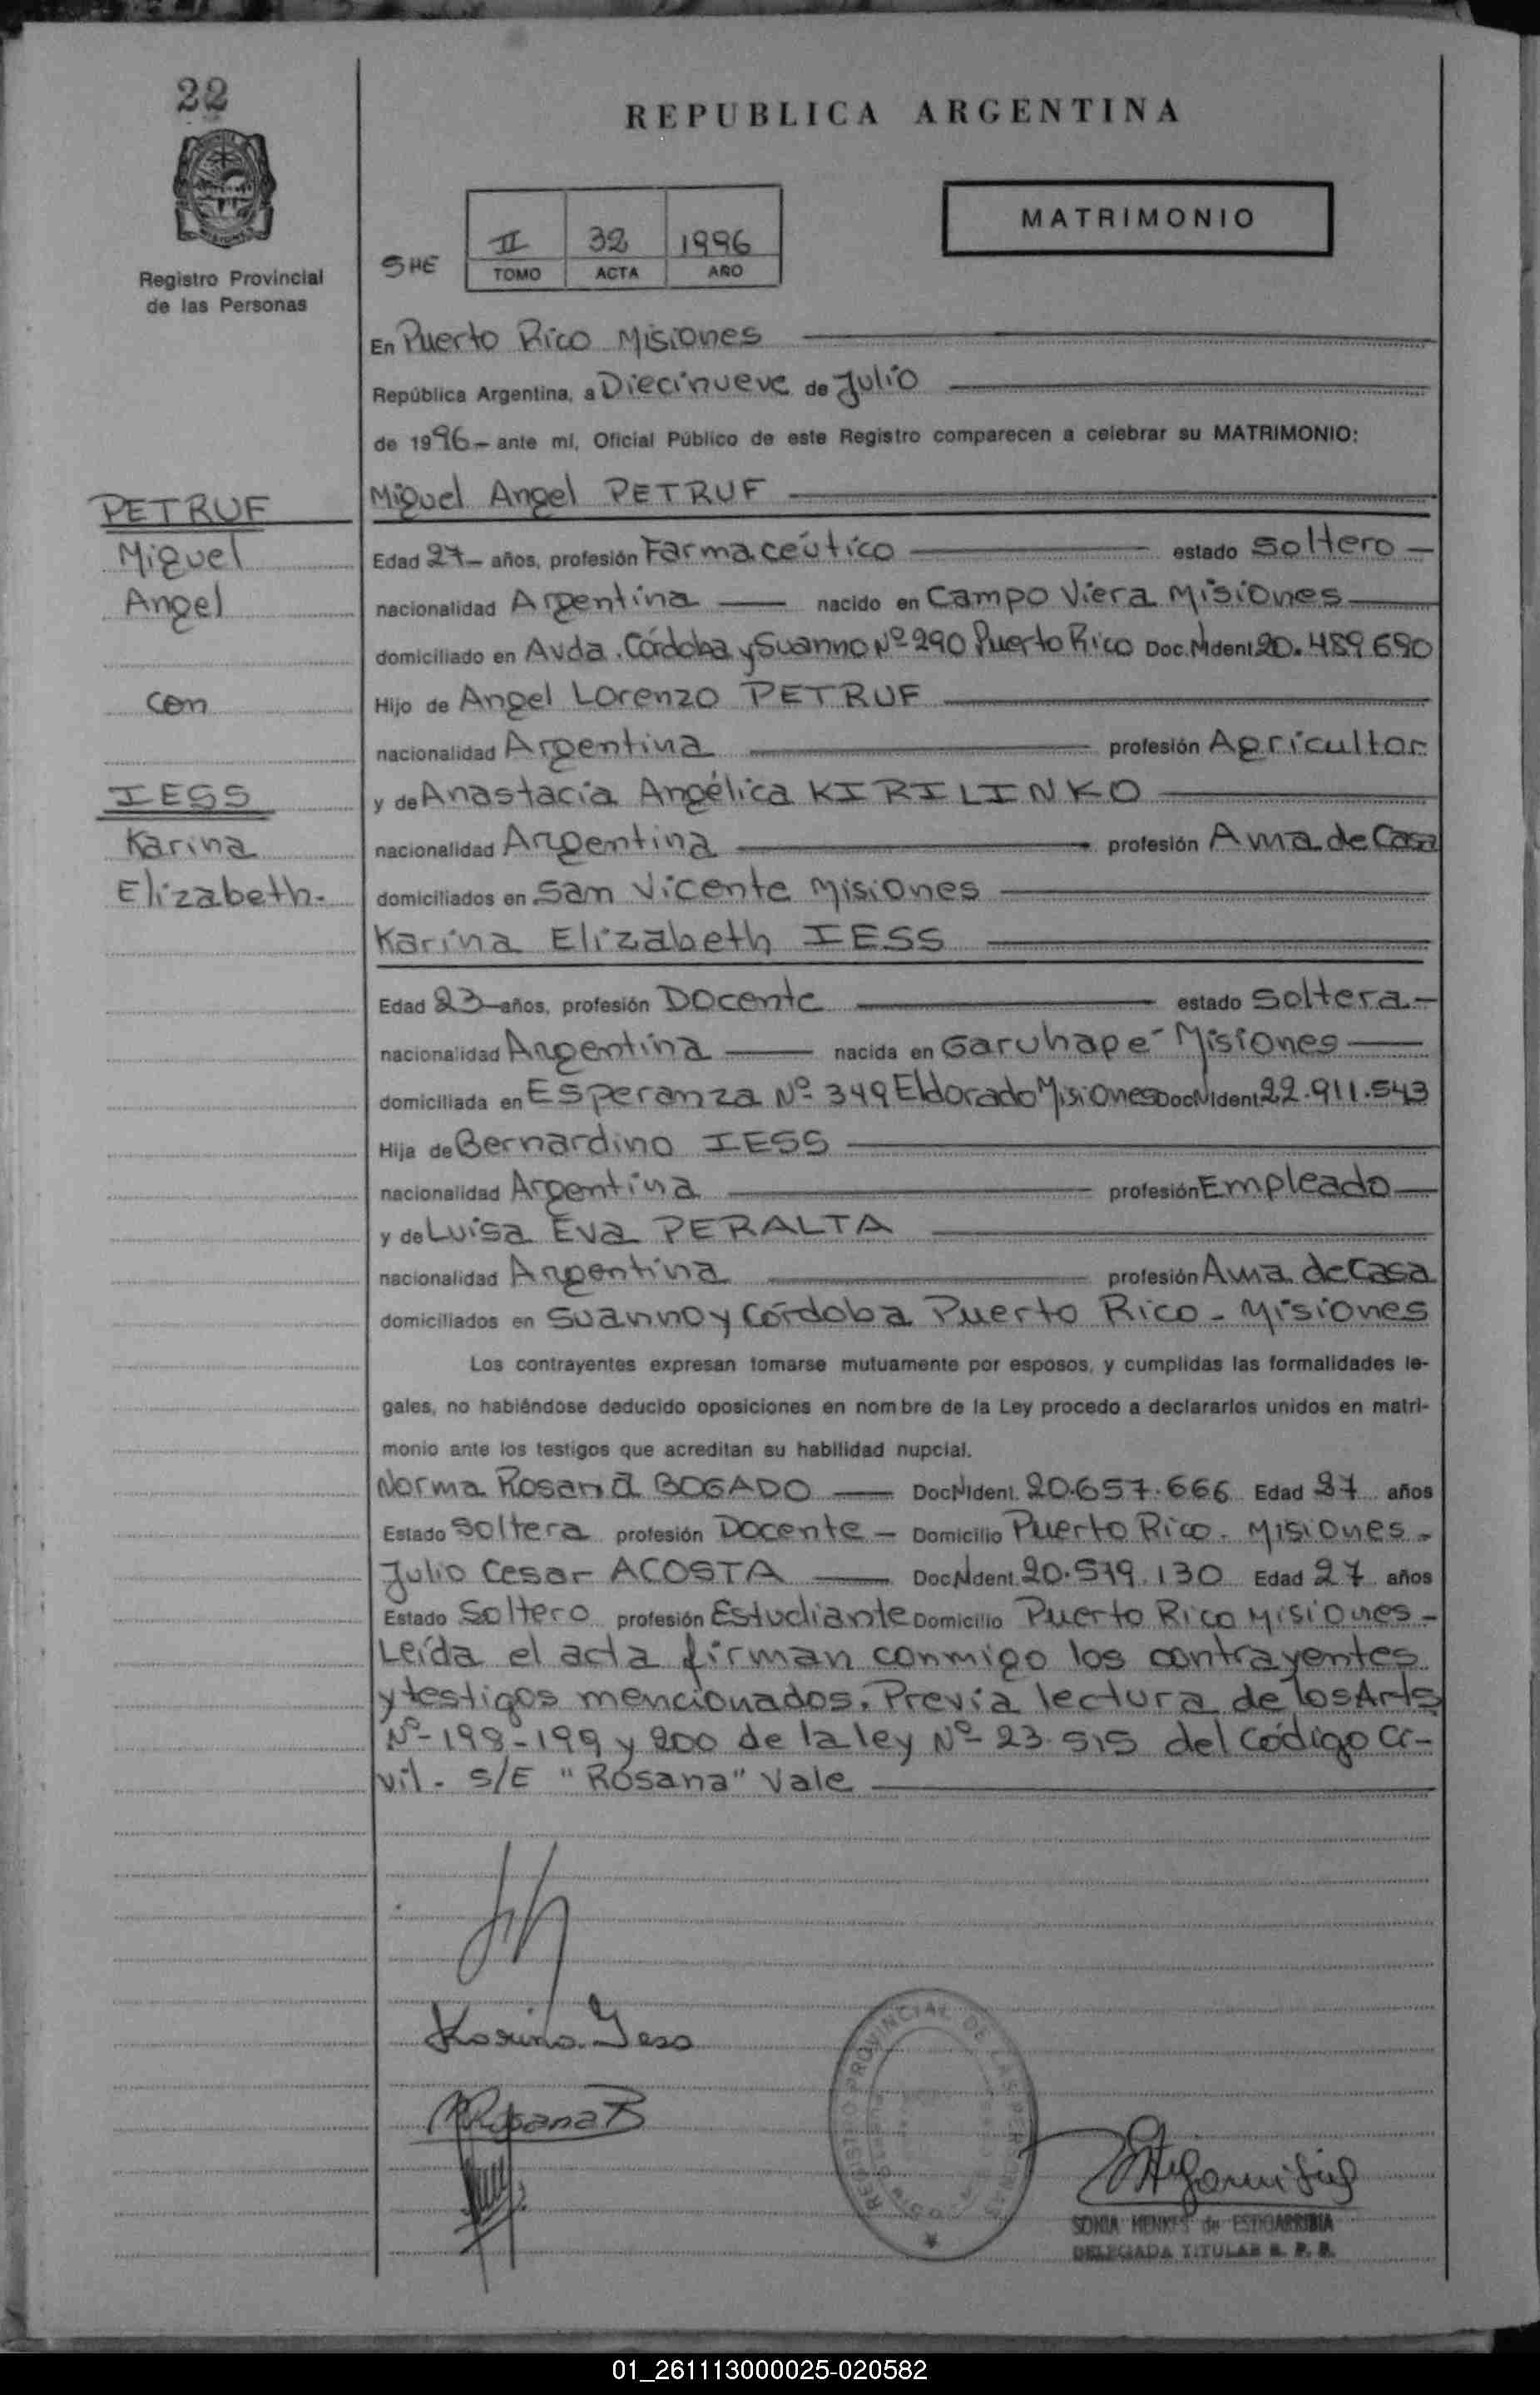 22
REPUBLICA ARGENTINA
MATRIMONIO
SHE
II 32 1996
TOMO ACTA AÑO
Registro Provincial
de las Personas
En Puerto Rico Misiones
República Argentina, a Diecinueve de Julio
de 1996- ante mí, Oficial Público de este Registro comparecen a celebrar su MATRIMONIO:
PETRUF
Miguel
Angel
con
IESS
Karina
Elizabeth.
Miguel Angel PETRUF
Edad 27- años, profesión Farmaceútico estado Soltero -
nacionalidad Argentina nacido en Campo Viera Misiones
domiciliado en Avda. Córdoba y Suanno Nº 290 Puerto Rico Doc.NIdent 20.489.690
Hijo de Angel Lorenzo PETRUF
nacionalidad Argentina profesión Agricultor
y de Anastacia Angélica KIRILINKO
nacionalidad Argentina profesión Ama de Casa
domiciliados en San Vicente Misiones
Karina Elizabeth IESS
Edad 23 años, profesión Docente estado Soltera.-
nacionalidad Argentina nacida en Garuhape - Misiones
domiciliada en Esperanza Nº 349 Eldorado Misiones DocNIdent 22.911.543
Hija de Bernardino IESS
nacionalidad Argentina profesión Empleado
y de Luisa Eva PERALTA
nacionalidad Argentina profesión Ama de Casa
domiciliados en Suanno y Córdoba Puerto Rico - Misiones
Los contrayentes expresan tomarse mutuamente por esposos, y cumplidas las formalidades le-
gales, no habiéndose deducido oposiciones en nombre de la Ley procedo a declararlos unidos en matri-
monio ante los testigos que acreditan su habilidad nupcial.
Norma Rosana BOGADO DocNIdent. 20.657.666 Edad 27 años
Estado Soltera profesión Docente - Domicilio Puerto Rico - Misiones -
Julio Cesar ACOSTA DocNIdent. 20.579.130 Edad 27 años
Estado Soltero profesión Estudiante Domicilio Puerto Rico Misiones -
Leída el acta firman conmigo los contrayentes
y testigos mencionados. Previa lectura de los Arts
Nº- 198-199 y 200 de la ley Nº- 23.515 del Código Ci-
vil. S/E "Rosana" Vale
Karina Iess
Rosana B
REGISTRO PROVINCIAL DE LAS PERSONAS
SONIA MENKES de ESTIGARRIBIA
DELEGADA TITULAR R. P. P.
01_261113000025-020582